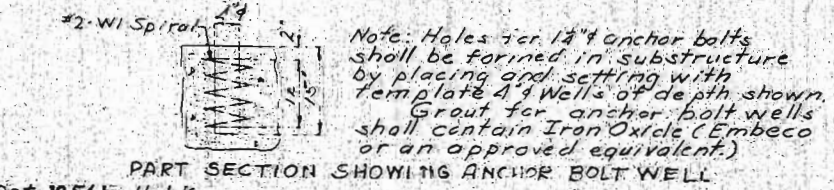 #2-W1 Spiral
4"φ
2"
Note: Holes for 1¼"φ anchor bolts
shall be formed in substructure
by placing and setting with
template 4"φ Wells of depth shown.
Grout for anchor bolt wells
shall contain Iron Oxide (Embeco
or an approved equivalent.)
PART SECTION SHOWING ANCHOR BOLT WELL